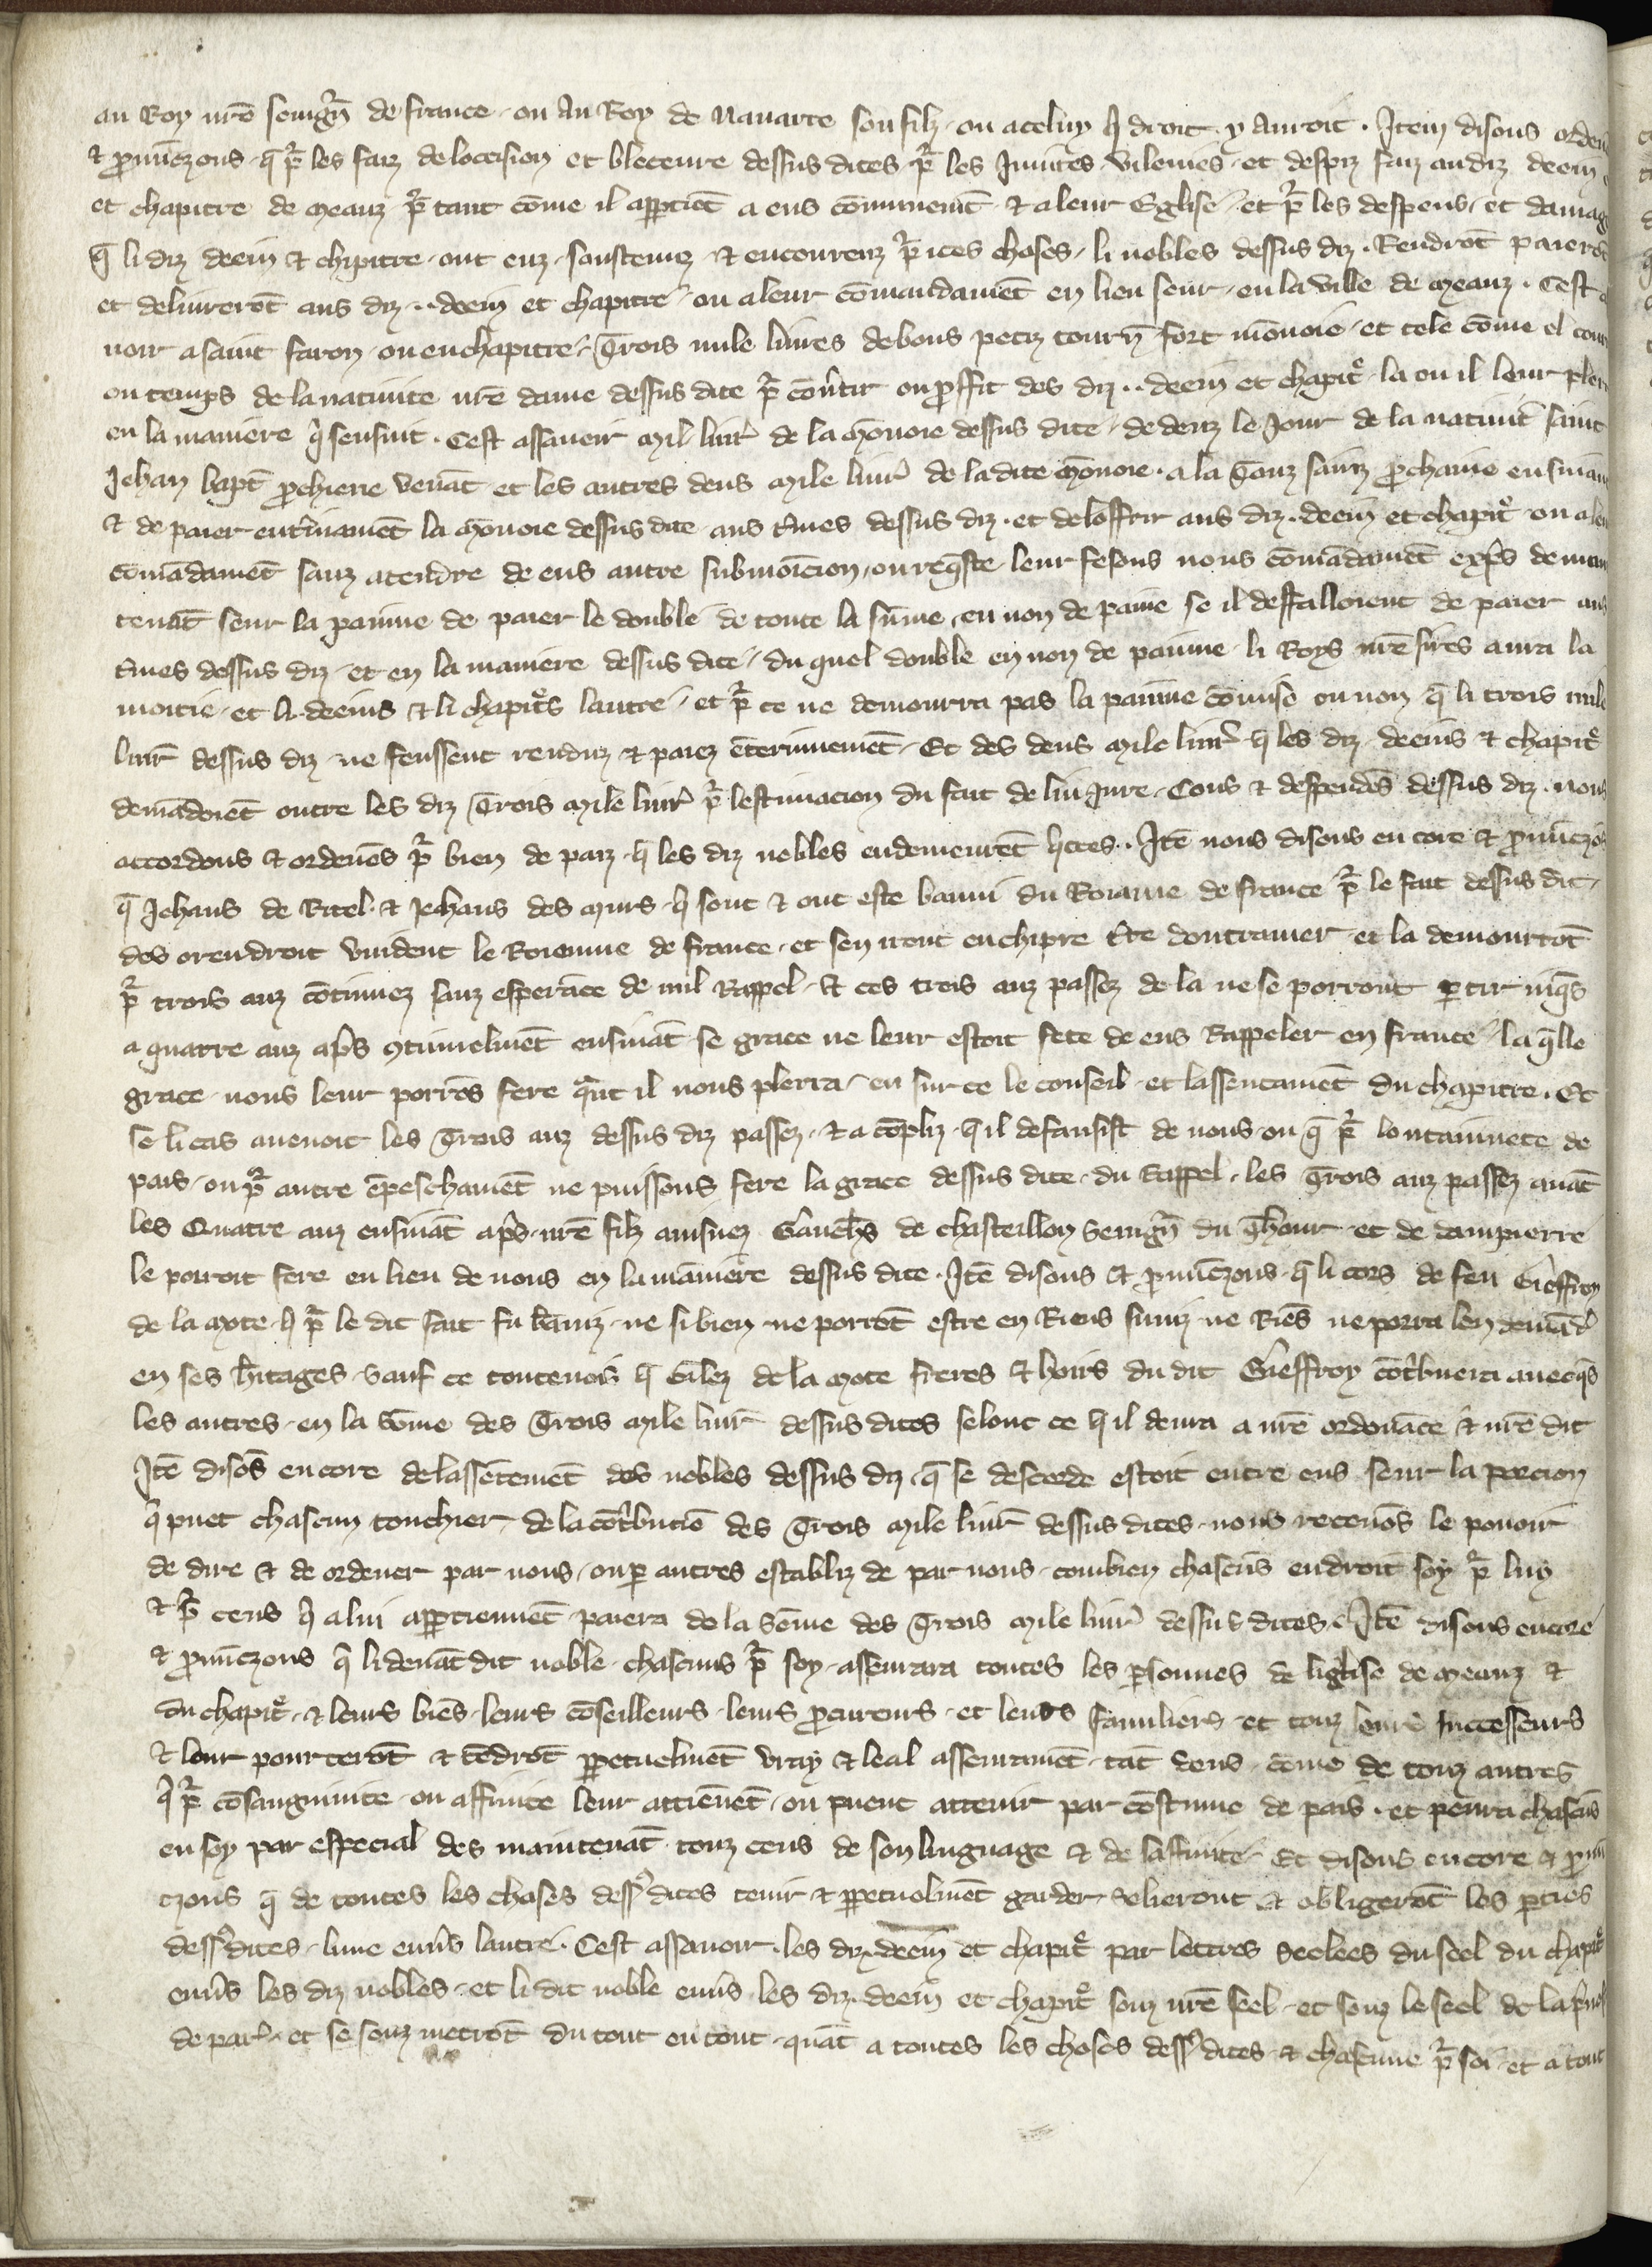 au Roy nr̄e seingn̄ de france / ou Au Roy de Nauarre son filz / ou aceluy q̇ droit y Auroit . Item disons orden
⁊ ꝓnūczons / q̄ pͬ les faiz de locision et blecenre dessus dites / pͬ les Iniures / vilenies / et despiz faiz audiz deein
et chapitre de meauz pͬ tant cōme il appͬtiēt a eus cōmunemt̄ ⁊ a leur Eglise / et pͬ les despens / et damag
q̄ li diz deein ⁊ chipitre / out euz / soustenuz ⁊ encourenz pͬ ices choses / li nobles dessus diz . Rendrōt paierōt
et deliurerōt aus diz .. deein et chapitre / ou a leur cōmandamēt en lieu seur / en la ville de meauz . Cest a
uoir a saint faron / ou en chapitre / Trois mile liures de bons petiz tourn̄ fort mōnoie / et tele cōme el cour
ou temps de la natiuite nr̄e dame dessus dite pͬ cōūtir ou ꝓffit des diz .. deein et chapit͛ / la ou il leur plera
en la maniere q̇ sensuit . Cest assauoir mil liur̄ de la mōnoie dessus dite / dedenz le Jour de la natiuit̄ saint
Jehan bapt̄ ꝓchiene venāt et les autres deus mile liur̄ de ladite mōnoie . a la Touz sainz ꝓchaine ensiuant
⁊ de paier ent̄inamēt la mōnoie dessus dite aus t̄mes dessus diz . et de loffrir aus diz . deein et chapit͛ ou a leur
cōmādamēt sanz atendre de eus autre submōicion / ou req̄ste leur fesons nous cōmādamēt exp̄s de main
tenāt seur la painne de paier le double de toute la sūme / en non de paine se il deffalloient de paier aus
t̄mes dessus diz / et en la maniere dessus dite / du quel double en non de painne li Roys nr̄e sires aura la
moitie / et li deeins ⁊ li chapit͛s lautre / et pͬ ce ne demourra pas la painne cōmise ou non q̄ li trois mile
liur̄ dessus diz ne feussent renduz ⁊ paiez ēterinnemēt / Et des deus mile liur̄ q̇ les diz / deeins ⁊ chapit͛
demādoiēt outre les diz Trois mile liur̄ pͬ lestimacion du fait de liniure / Cous ⁊ despendos dessus diz . nous
accordons ⁊ ordenōs pͬ bien de paiz / q̇ les diz nobles en demeurēt q̇ctes . Itē nous disons encore ⁊ ꝓnūczōs
q̄ Jehans de Ritel ⁊ Jehans des murs / q̇ sont ⁊ ont este banni du Roiaume de france pͬ le fait dessus dit /
des orendroit vuident le Roieaume de france / et sen iront en chipre t̄re doutramer / et la demourrōt
pͬ trois anz cōtinuez sanz esperāce de nul Rappel / ⁊ ces trois anz passez de la ne se porront ꝑtir iusq̄s
a quatre anz ap̄s ꝯtinuelmēt ensiuāt se grace ne leur estoit fete de eus Rappeler en france / la q̄lle
grace / nous leur porrōs fere qͣnt il nous plerra / eu sur ce le conseil / et lassentamēt du chapitre . Et
se li cas auenoit les Trois anz dessus diz passez / ⁊ acōpliz / q̇ il defausist de nous / ou q̄ pͬ lontainnete de
pais / ou pͬ autre ēpeschamēt ne puissons fere la grace dessus dite / du Rappel / les Trois anz passez auāt
les Quatre anz ensiuāt ap̄s / nr̄e filz ainsnez Gauch̄s de chasteillon Seingn̄ du Thour / et de dampierre
le pourroit fere en lieu de nous en la maniere dessus dite . Itē disons ⁊ ꝓnūczons / q̄ li cors de feu Gieffroy
de la mote / q̇ pͬ le dit fait fu bāniz / ne si bien ne porrōt estre en Riens suniz / ne Riēs ne porra len demād̄
en ses h̄itages / sauf ce toutevois q̇ Gilez de la mote freres ⁊ hoirs du dit Gieffroy cōt̄buera auecq̄s
les autres / en la sōme des Trois mile liur̄ dessus dites selonc ce q̇ il deura a nr̄e ordenāce ⁊ nr̄e dit
Itē disōs encore de lassētement des nobles dessus diz / q̄ se descorde estoit entre eus seur la porcion
q̇ puet chascun touchier / de la cōt̄buciō des Trois mile liur̄ dessus dites / nous retenōs le pouoir
de dire ⁊ de ordener par nous / ou ꝑ autres establiz de par nous / combien chascūs endroit soy pͬ luy
⁊ pͬ ceus q̇ a lui appͬtiennēt / paiera de la sōme des Trois mile liur̄ dessus dites / Itē disons encore
⁊ ꝓnūczons q̄ li deuāt dit noble / chascuns pͬ soy / asseurara toutes les ꝑsonnes de liglise de meauz ⁊
du chapit͛ / ⁊ leurs biēs / leurs cōseilleurs / leurs ꝓcureurs / et leurs familiers / et touz leurs successeurs
⁊ leur pourterōt ⁊ tēdrōt ꝑpetuelmēt vray ⁊ leal asseuramēt / tāt deus / cōme de touz autres
q̇ pͬ cōsanguinite / ou affinite leur attiēnēt / ou puent attenir par cōstume de pais . et penra chascūs
en soy par especial des maintenāt touz ceus de son linguage ⁊ de laffinite / Et disons encore ⁊ ꝓnū
czons q̄ de toutes les choses dess᷒ dites tenir ⁊ ꝑpetuelmēt garder / se lieront ⁊ obligerōt les ꝑties
dess᷒ dites / lune enūs lautre . Cest assauoir . les diz . deein et chapit͛ par lettres seelees du seel du chapit͛
enūs les diz nobles / et li dit noble enūs les diz . deein et chapit͛ souz nr̄e seel / et souz le seel de la p̄uos
de par̄ / et se souz metrōt du tout en tout / quāt a toutes les choses dess᷒ dites / ⁊ chascune pͬ soi / et a tout